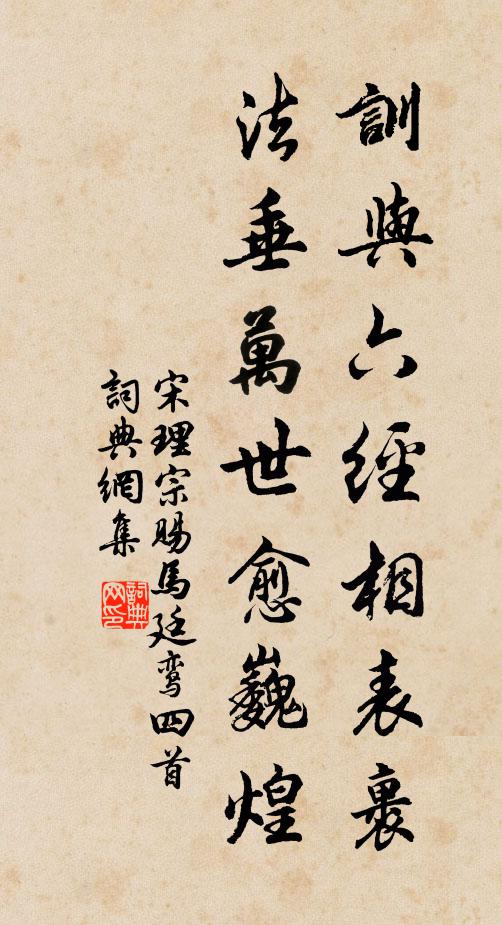 訓與六經相表裹
法垂萬世愈巍煌
宋理宗賜馬廷鸾四首
詞典網集
詞典网印